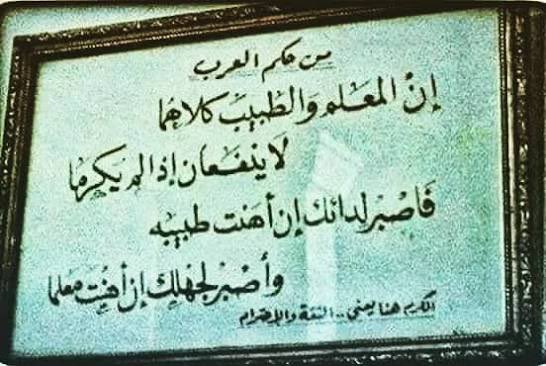 من حكم العرب
إنْ المعَلم وَالطبيبَ كلاهُما
لا ينفعَان إذا لم يكرمَا
فَاصْبرْ لدائك إن أهَنت طبيبه
وأصْبرْ لجهْلِك إن أهَنْتَ معَلما
الكرم هنا يعني.. الثقة والإحترام